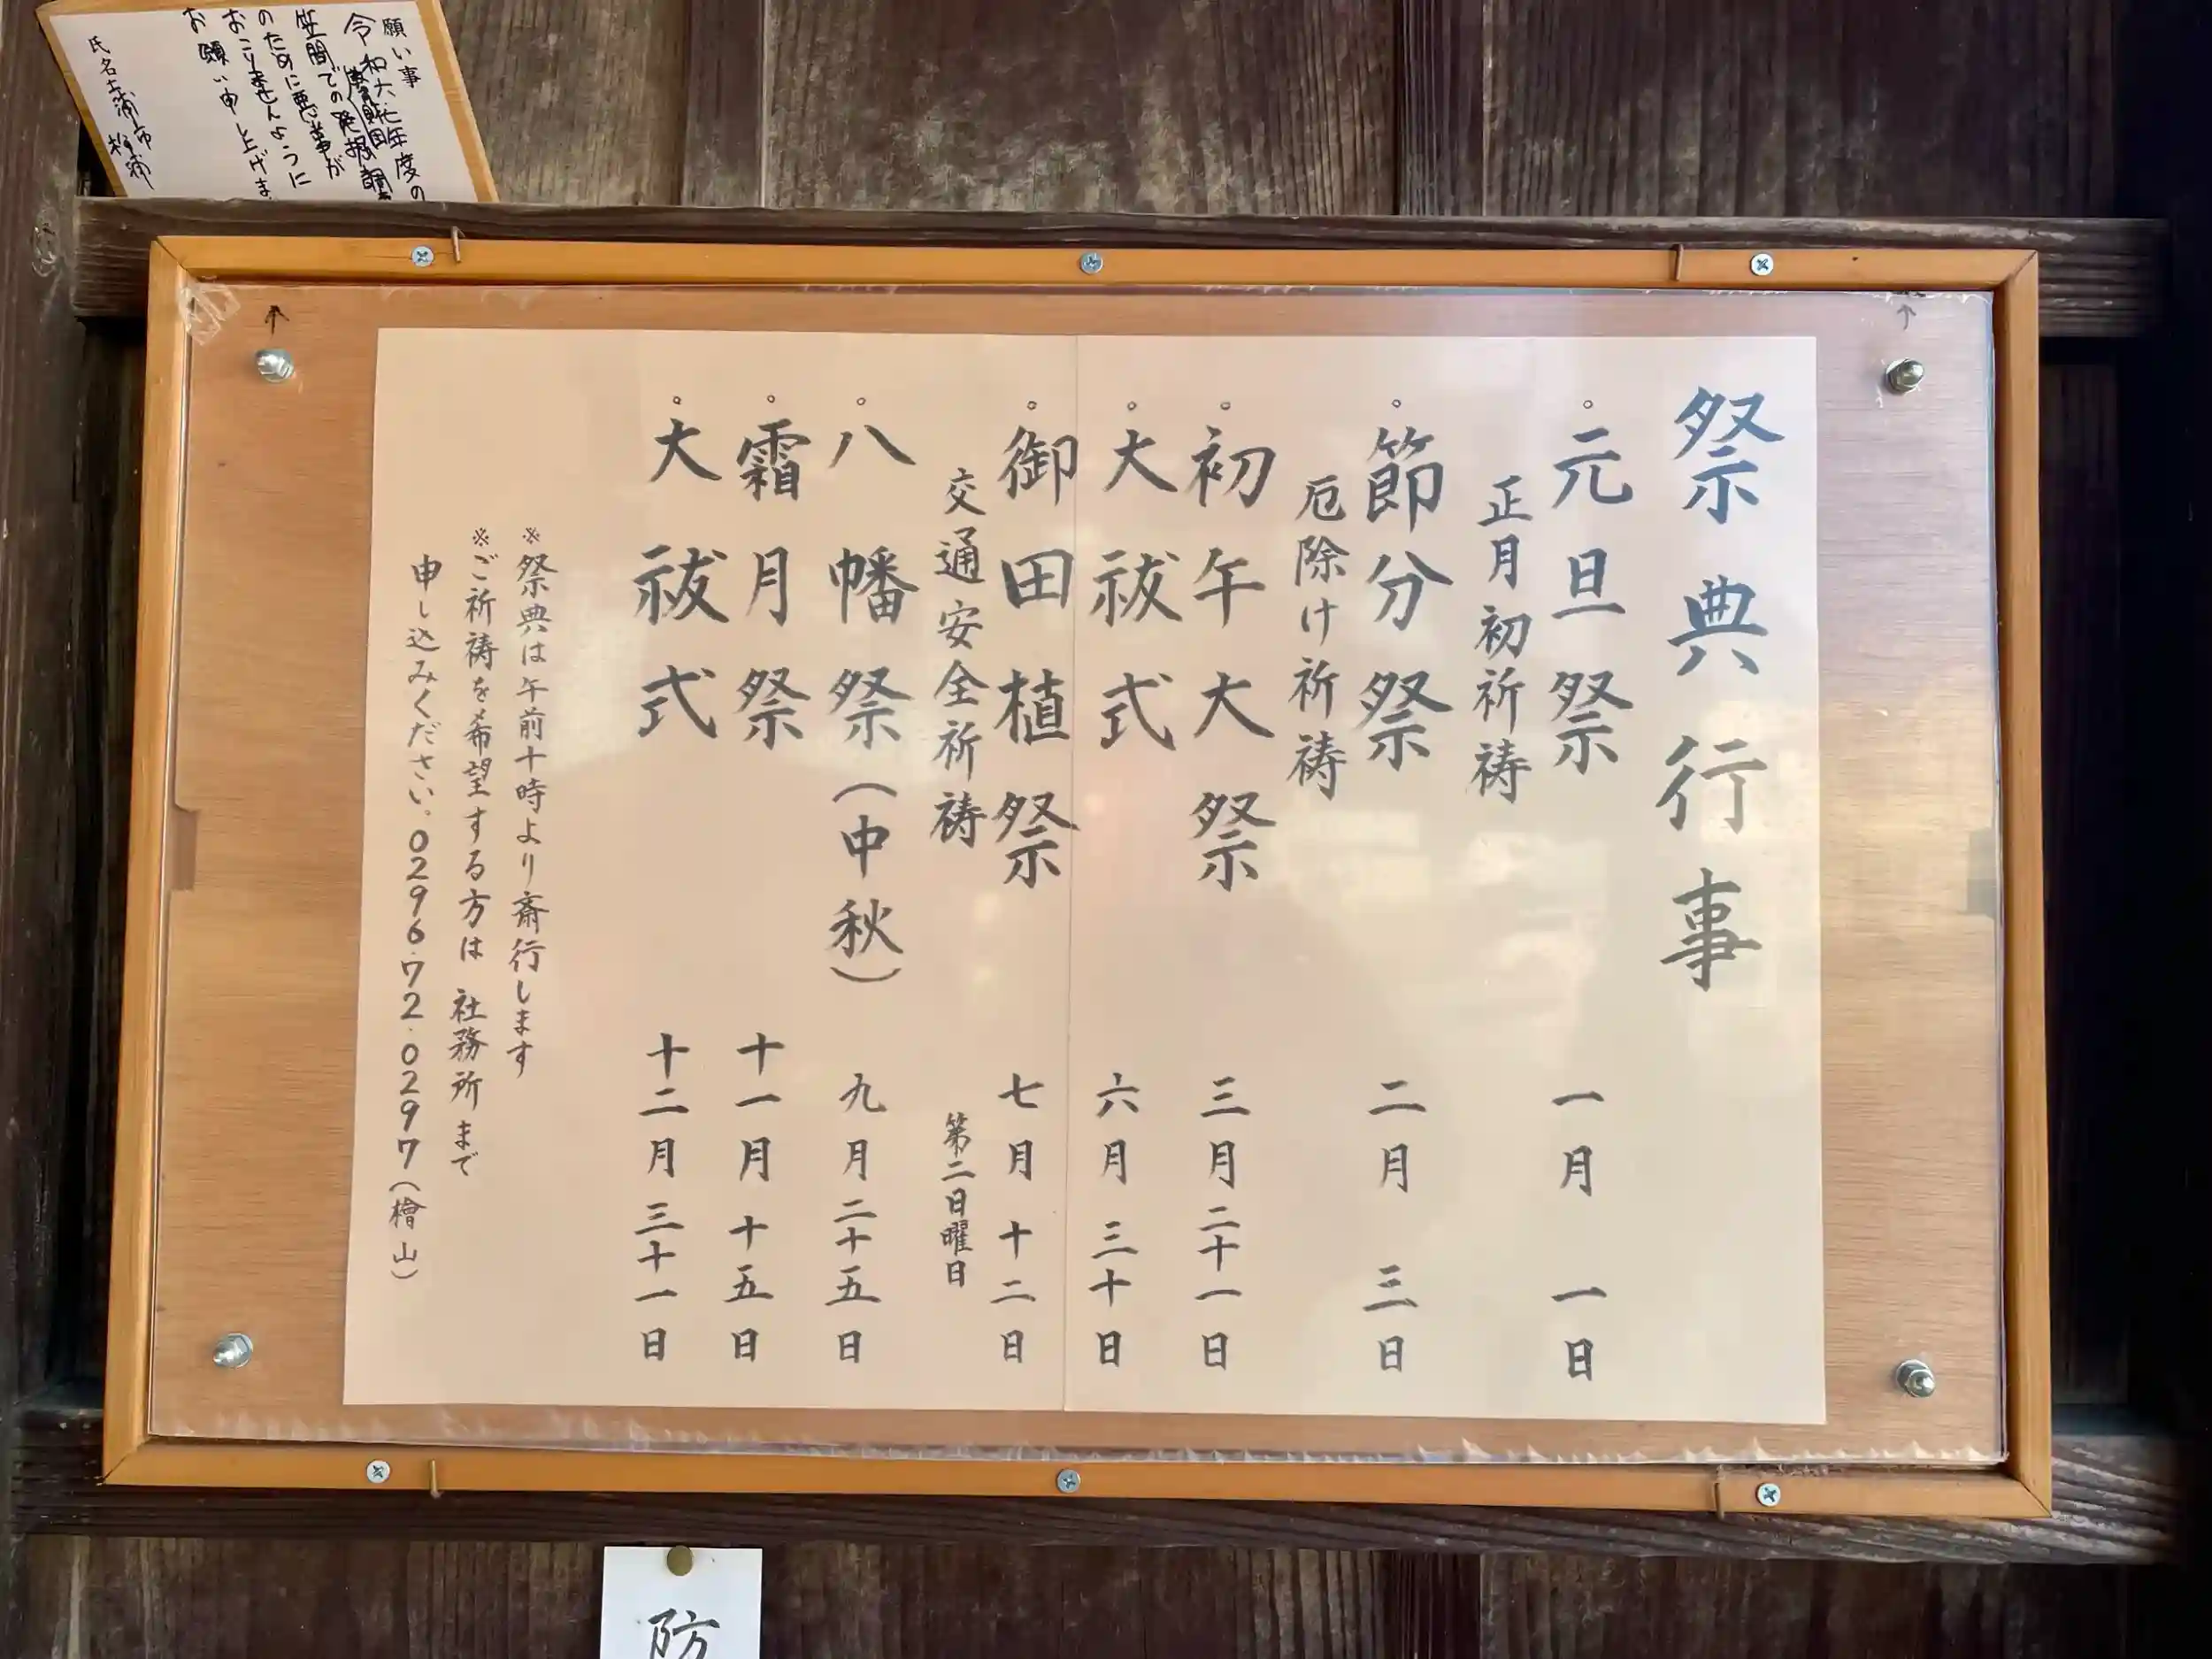 祭典行事
。元旦祭 一月 一日
正月初祈祷
。節分祭 二月 三日
厄除け祈祷
。初午大祭 三月二十一日
。大祓式 六月 三十日
。御田植祭 七月 十二日
交通安全祈祷 第二日曜日
。八幡祭(中秋) 九月二十五日
。霜月祭 十一月 十五日
。大祓式 十二月三十一日
※祭典は午前十時より斎行します
※ご祈祷を希望する方は 社務所まで
申し込みください。0296・72・0297(檜山)
願い事
令和六、七年度の
笠間での発掘調
のために悪い事が
おこりませんように
お願い申し上げま
氏名 土浦市
防